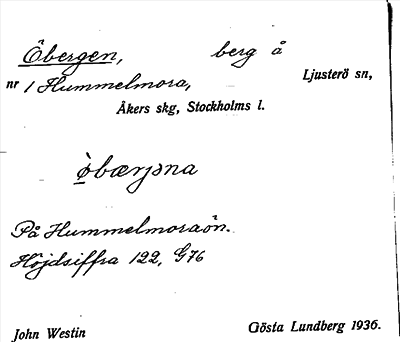 Öbergen, berg å
nr 1 Hummelmora, Ljusterö sn,
Åkers skg, Stockholms l.
ø̀bærjəna
På Hummelmoraön.
Höjdsiffra 122, G76
John Westin Gösta Lundberg 1936.